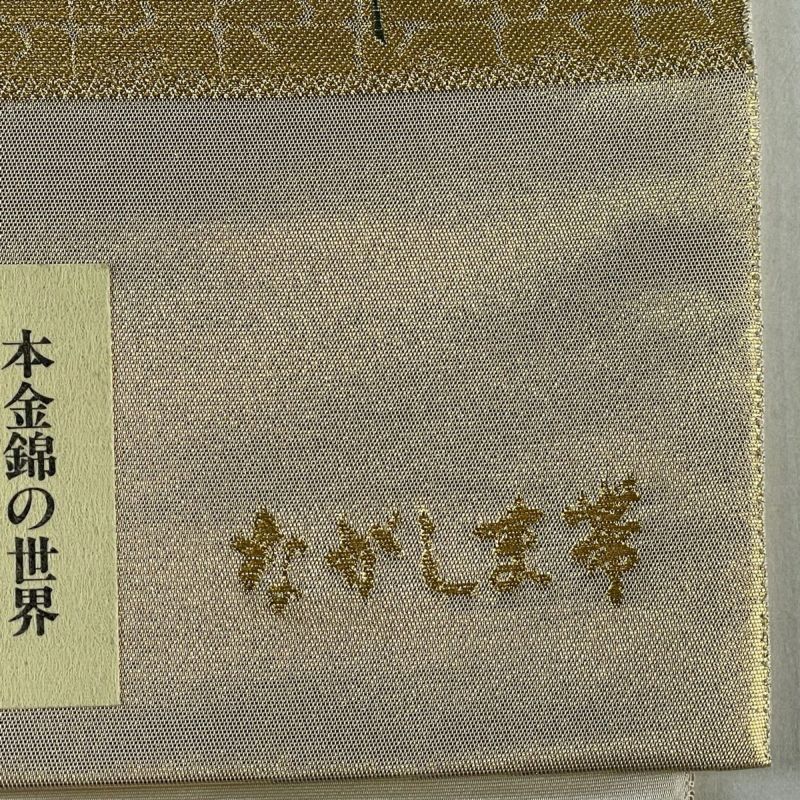 本金錦の世界
ながしま帯